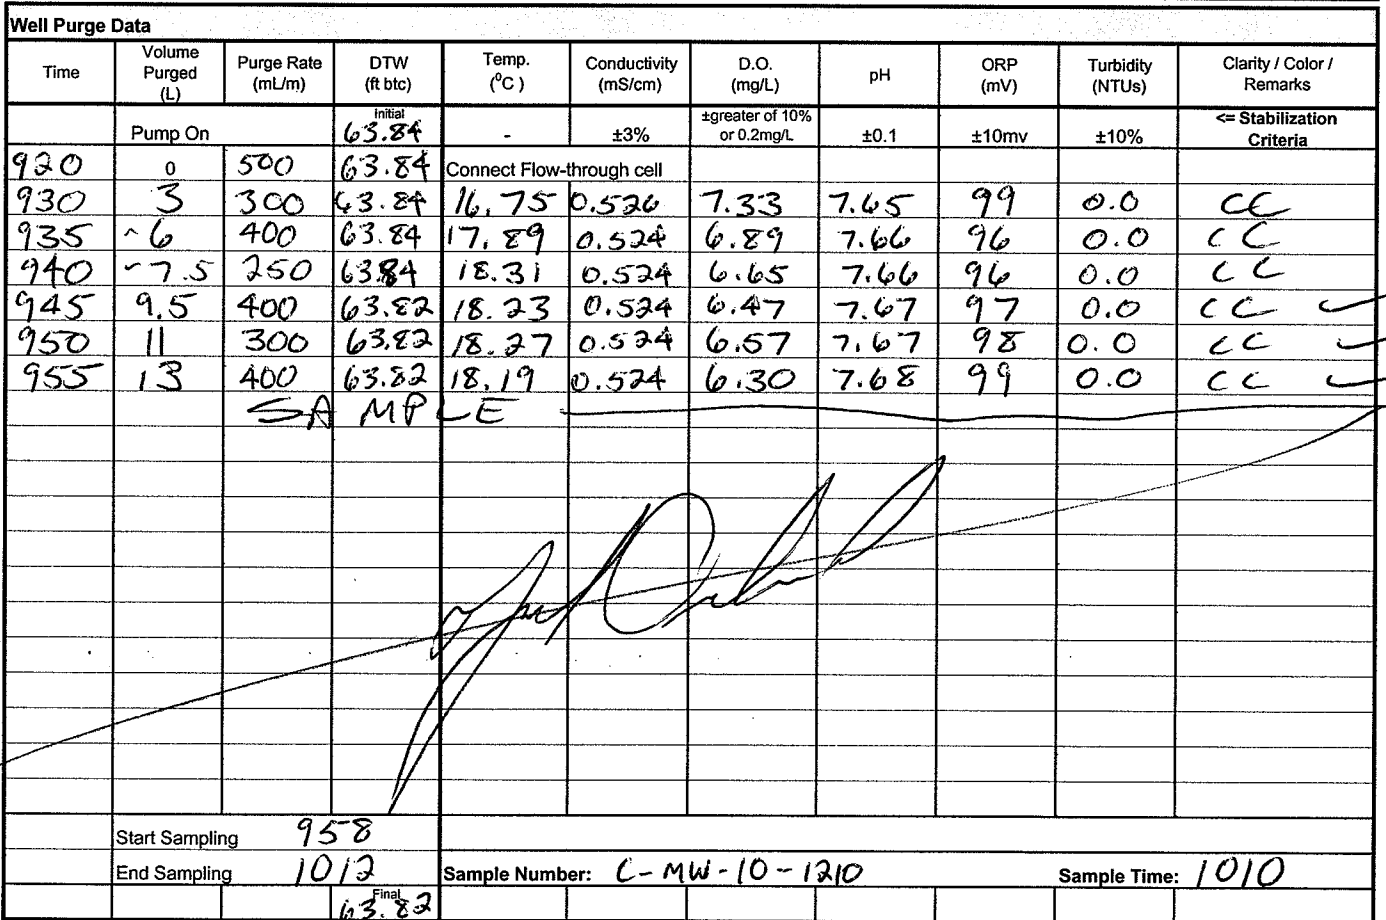 Well Purge Data
Time Volume Purged (L) Purge Rate (mL/m) DTW (ft btc) Temp. (⁰C ) Conductivity (mS/cm) D.O. (mg/L) pH ORP (mV) Turbidity (NTUs) Clarity / Color / Remarks
Pump On Initial 63.84 - ±3% ±greater of 10% or 0.2mg/L ±0.1 ±10mv ±10% <= Stabilization Criteria
920 0 500 63.84 Connect Flow-through cell
930 3 300 63.84 16.75 0.526 7.33 7.65 99 0.0 CC
935 ~6 400 63.84 17.89 0.524 6.89 7.66 96 0.0 CC
940 ~7.5 250 63.84 18.31 0.524 6.65 7.66 96 0.0 CC
945 9.5 400 63.82 18.23 0.524 6.47 7.67 97 0.0 CC ✓
950 11 300 63.82 18.27 0.524 6.57 7.67 98 0.0 CC ✓
955 13 400 63.82 18.19 0.524 6.30 7.68 99 0.0 CC ✓
SAMPLE
Start Sampling 958
End Sampling 1012 Sample Number: C-MW-10-1210 Sample Time: 1010
Final 63.82